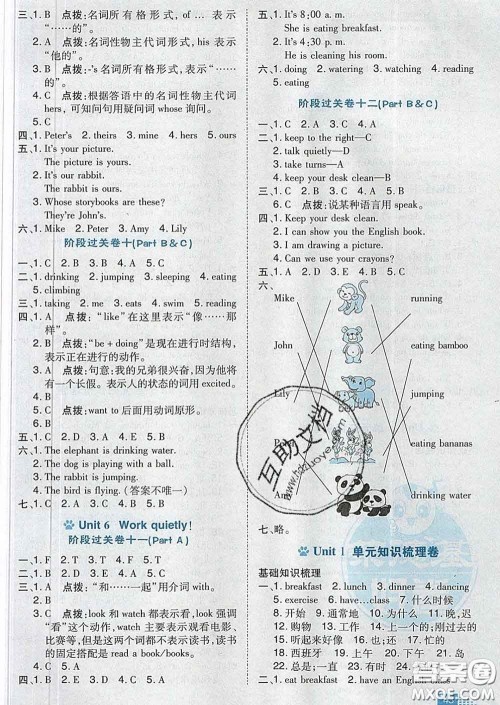 三、1. B 点拨:名词所有格形式, of…表示
“……的”。
2. B 点拨:名词性物主代词形式,表示
“他的”。
3. A 点拨:-'s名词所有格形式,表示
“……的”。
4. C 点拨:根据答语中的名词性物主代词
hers,可知问句用疑问词 whose 询问。
5. A
四、1. Peter's 2. theirs 3. mine 4. hers 5. ours
五、1. It's your picture.
The picture is yours.
2. It's our rabbit.
The rabbit is ours.
3. Whose storybooks are these?
They're John's.
六、1. Mike 2. Peter 3. Amy 4. Lily
阶段过关卷十(Part B&C)
一、1. C 2. B 3. A 4. C 5. B
二、1. drinking 2. jumping 3. sleeping 4. eating
5. climbing
三、1. taking 2. me 3. eats 4. swim 5. reading
四、1. A 点拨:“like”在这里表示“像……那
样”。
2. B 点拨:“be + doing”是现在进行时结构,
表示正在进行的动作。
3. A 点拨:句意:我的兄弟很兴奋,因为他将
有一个长假。表示人的状态的词用 excited。
4. B
5. C 点拨:want to 后面用动词原形。
五、1. C 2. D 3. A 4. E 5. B
六、1. The elephant is drinking water.
2. The dog is playing with a ball.
3. The rabbit is jumping.
4. The bird is flying. (答案不唯一)
七、1. C 2. B 3. D 4. A
Unit 6 Work quietly!
阶段过关卷十一(Part A)
一、1. C 2. B 3. C 4. A 5. B
二、1. B 2. A 3. C 4. C 5. A
三、1. C 点拨:“和……一起”用介词 with。
2. B
3. C 点拨:look 和 watch 都表示看,look 强调
“看”这个动作,watch 多用来表示观看电
影、比赛等,但是这两个词不表示读书,读书
的固定搭配是 read a book/books。
4. C 5. A
四、1. C 2. D 3. B 4. A 5. B
五、1. It's 8:00 a. m.
She is eating breakfast.
2. It's 4:30 p. m.
He is cleaning his room.
六、1. doing 2. watering 3. watching 4. reading
5. eating
阶段过关卷十二(Part B&C)
一、1. C 2. A 3. C 4. A 5. B
二、1. keep to the right—C
2. talk quietly—D
3. take turns—A
4. keep your desk clean—B
三、1. C 2. B 3. C 点拨:说某种语言用 speak。
四、1. Keep your desk clean.
2. I can show you the English book.
3. I am drawing a picture.
4. Can we use your crayons?
五、1. A 2. D 3. B 4. C 5. E
六、
Mike running
John eating bamboo
Lily jumping
Peter eating bananas
drinking water
互助文档
七、略。
Unit 1 单元知识梳理卷
基础知识梳理
一、1. breakfast 2. lunch 3. dinner 4. dancing
5. exercise 6. class 7. 什么时候
8. 开始 9. 通常地 10. 为什么 11. 晚,迟
12. 努力地 13. 工作 14. 上一个的;刚过去的
15. 听起来好像 16. 也;还 17. 忙的
18. 西班牙 19. 上午,午前 20. 下午,午后
21. 总是;一直 22. 商店 23. 玩 24. 岛
二、1. eat breakfast